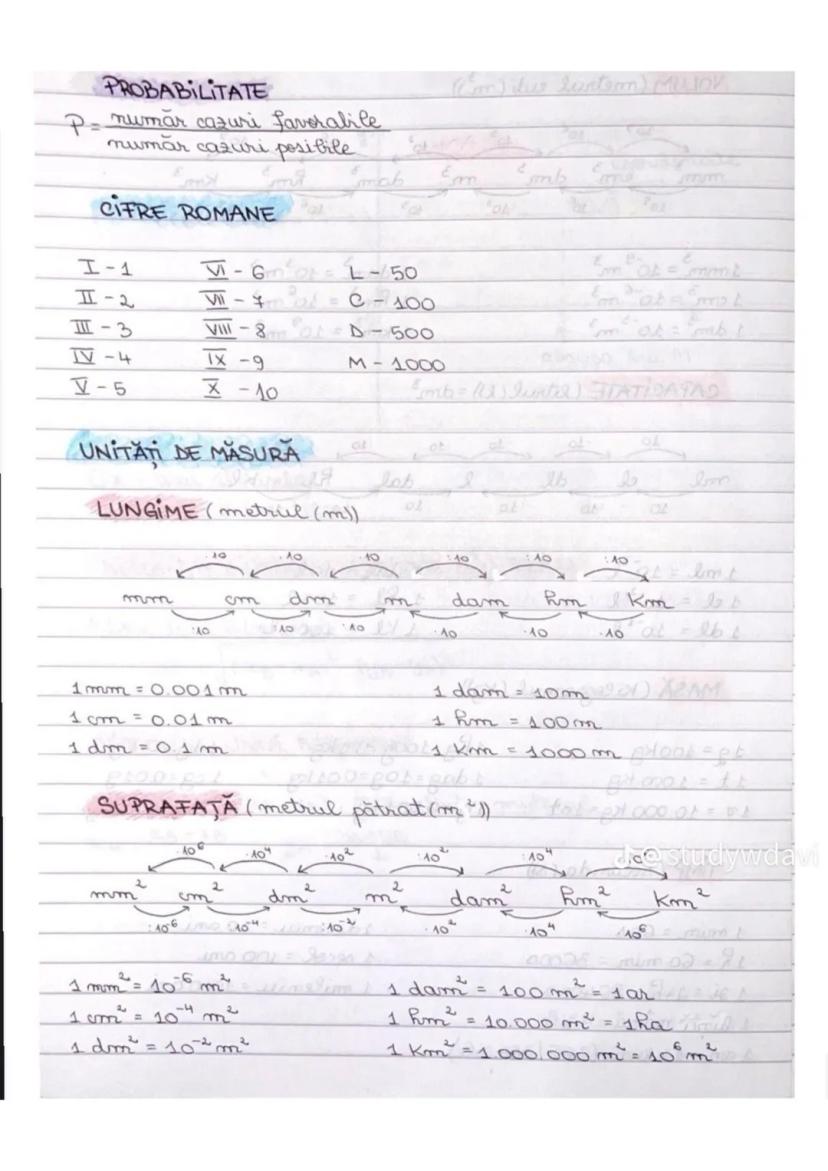 PROBABILITATE
P = număr cazuri favorabile / număr cazuri posibile
CIFRE ROMANE
I - 1 VI - 6 L - 50
II - 2 VII - 7 C - 100
III - 3 VIII - 8 D - 500
IV - 4 IX - 9 M - 1000
V - 5 X - 10
UNITĂȚI DE MĂSURĂ
LUNGIME (metrul (m))
·10 ·10 ·10 :10 :10 :10
mm cm dm m dam hm km
:10 :10 :10 ·10 ·10 ·10
1 mm = 0.001 m 1 dam = 10 m
1 cm = 0.01 m 1 hm = 100 m
1 dm = 0.1 m 1 km = 1000 m
SUPRAFAȚĂ (metrul pătrat (m²))
·10⁶ ·10⁴ ·10² :10² :10⁴
@studywdavi
mm² cm² dm² m² dam² hm² km²
:10⁶ :10⁻⁴ :10⁻² ·10² ·10⁴ ·10⁶
1 mm² = 10⁻⁶ m² 1 dam² = 100 m² = 1ar
1 cm² = 10⁻⁴ m² 1 hm² = 10.000 m² = 1ha
1 dm² = 10⁻² m² 1 km² = 1 000 000 m² = 10⁶ m²